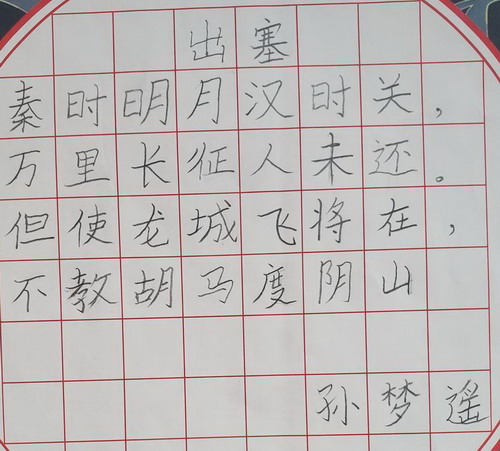 出塞
秦时明月汉时关，
万里长征人未还。
但使龙城飞将在，
不教胡马度阴山
孙梦遥